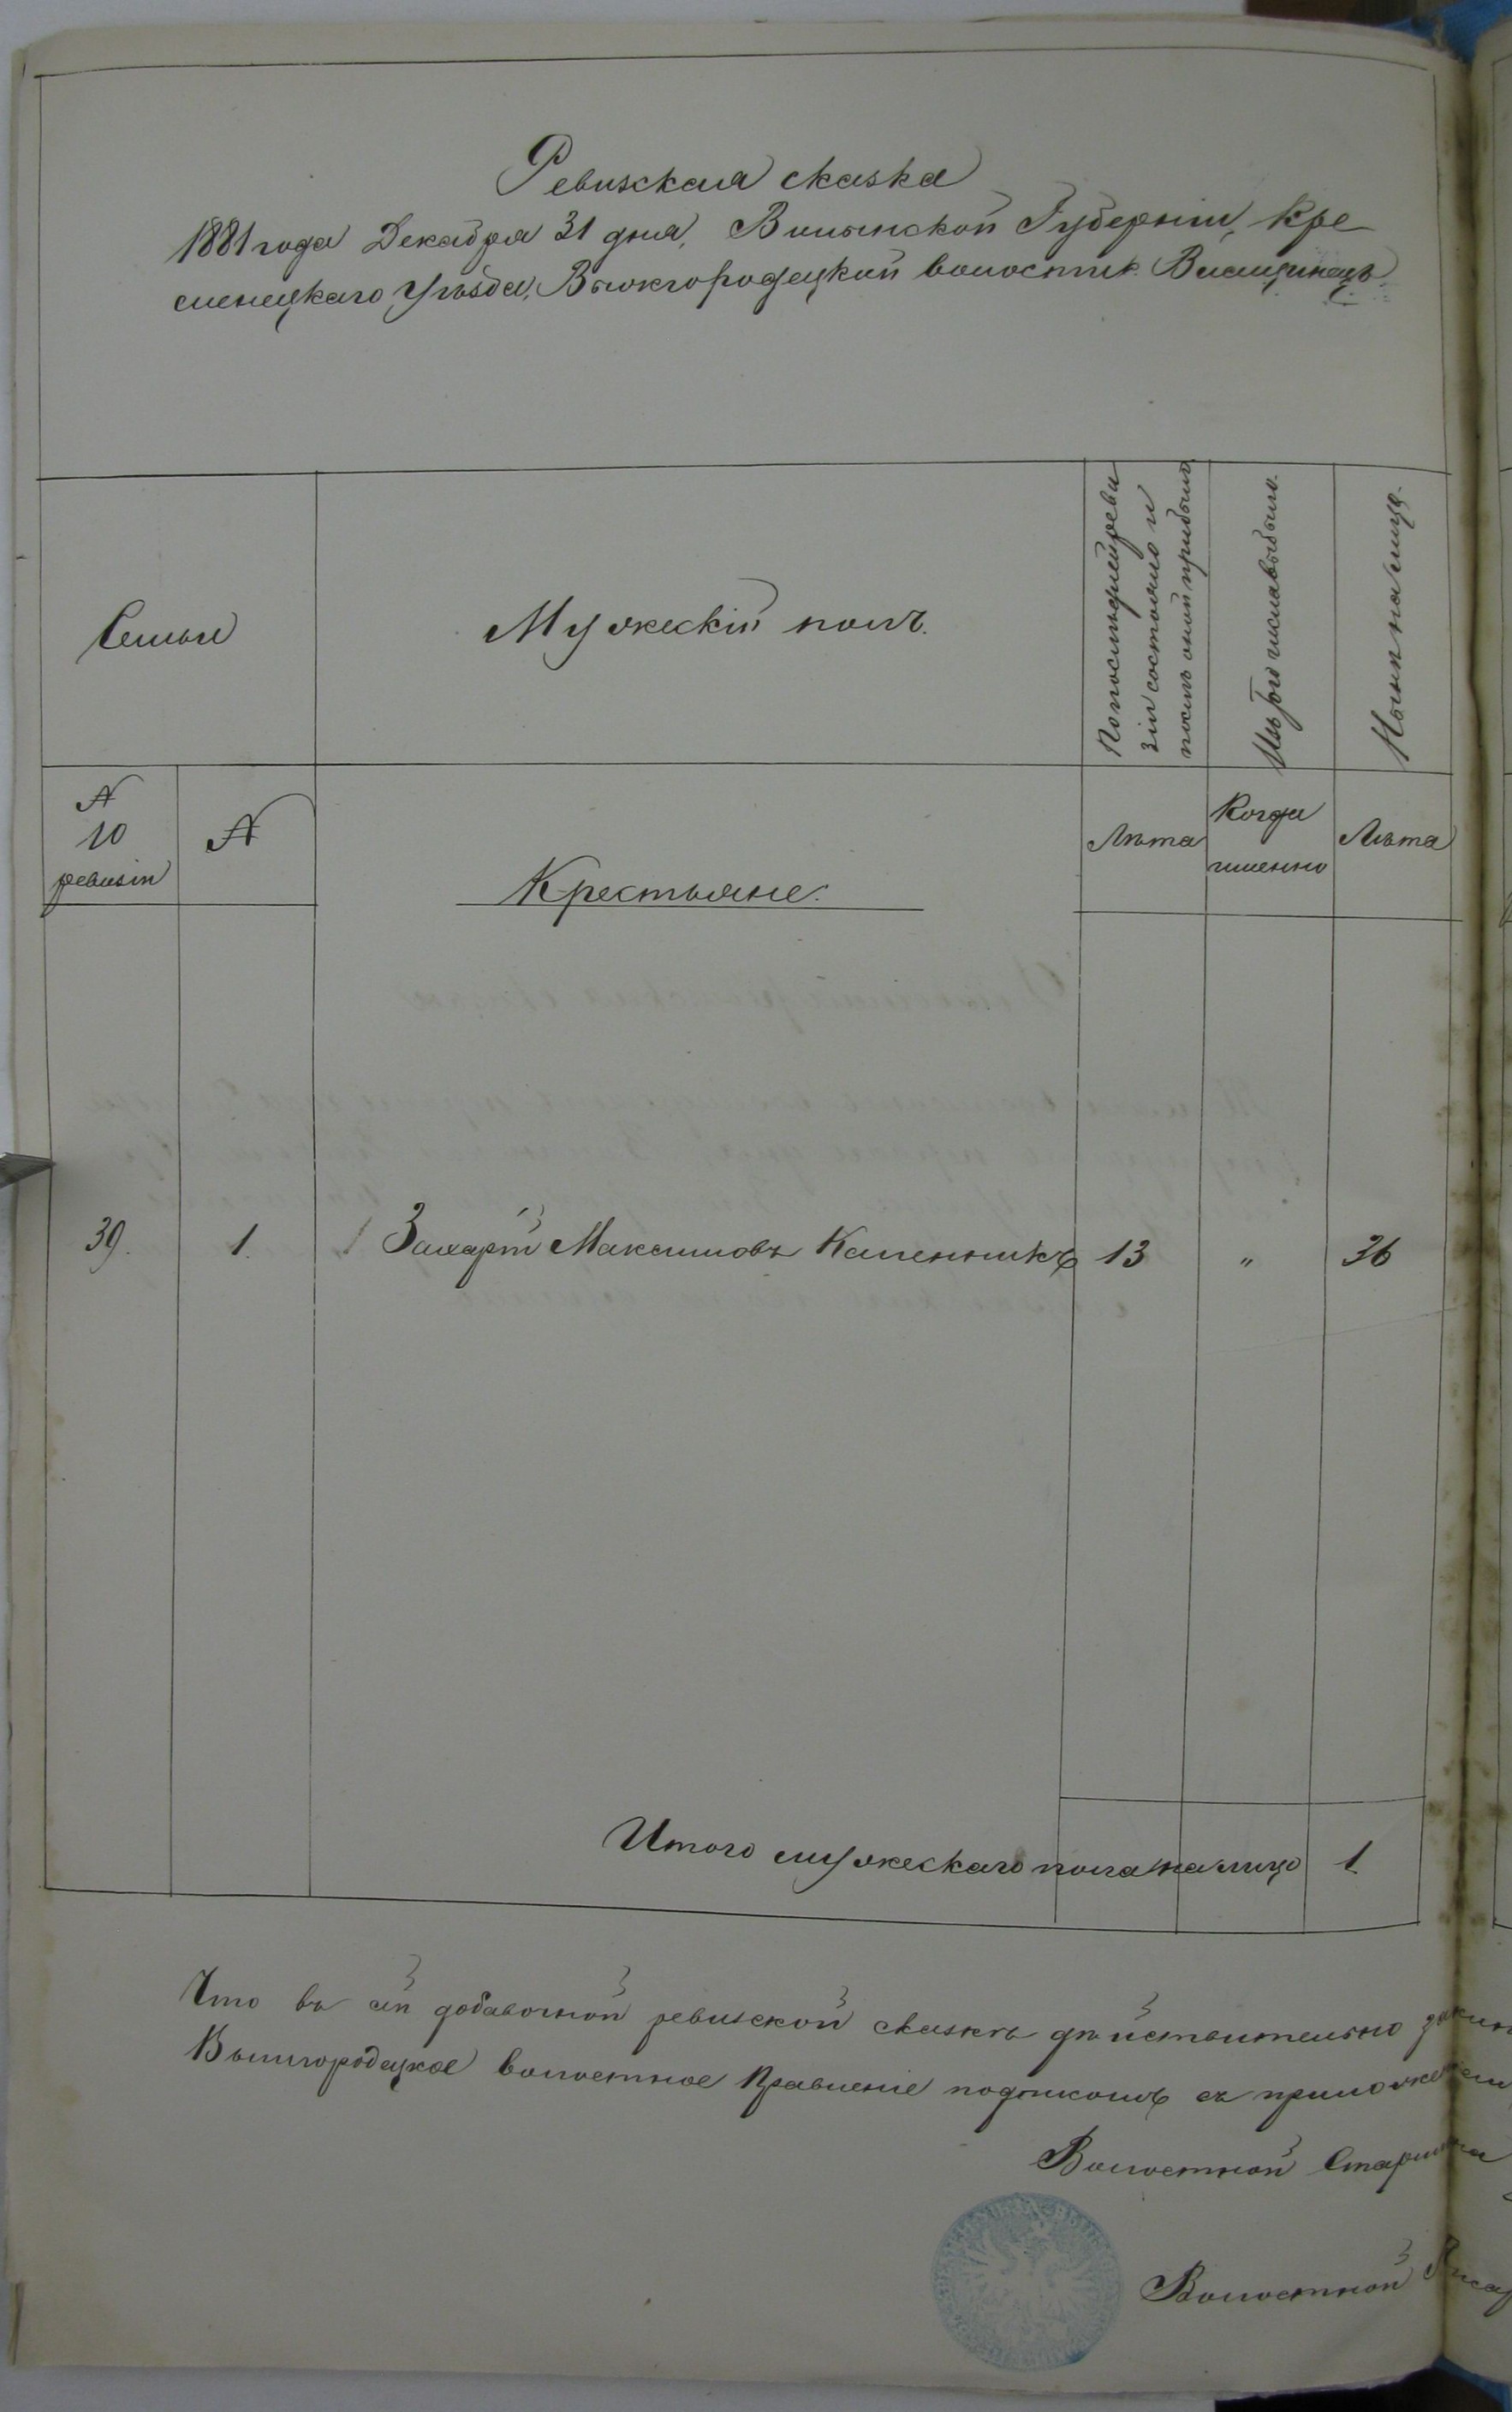 Ревизская сказка
1881 года Декабря 31 дня, Волынской Губерніи, Кре
менецкаго Уѣзда, Вышгородецкой волости
Семьи
Мужескій полъ.
По послѣдней реви
зіи состояло и
послѣ оной прибыло
Изъ того числа выбыло.
Нынѣ на лицо.
№
10
ревизіи
№
Крестьяне.
Лѣта
Когда
именно
Лѣта
39.
1.
1 Захарій Максимовъ Каменникъ
13
"
36
Итого мужескаго пола на лицо
1
Что въ сей добавочной ревизской сказкѣ дѣйствительно
Вышгородецкое волостное Правленіе подписомъ съ
Волостной Старшина
Волостной